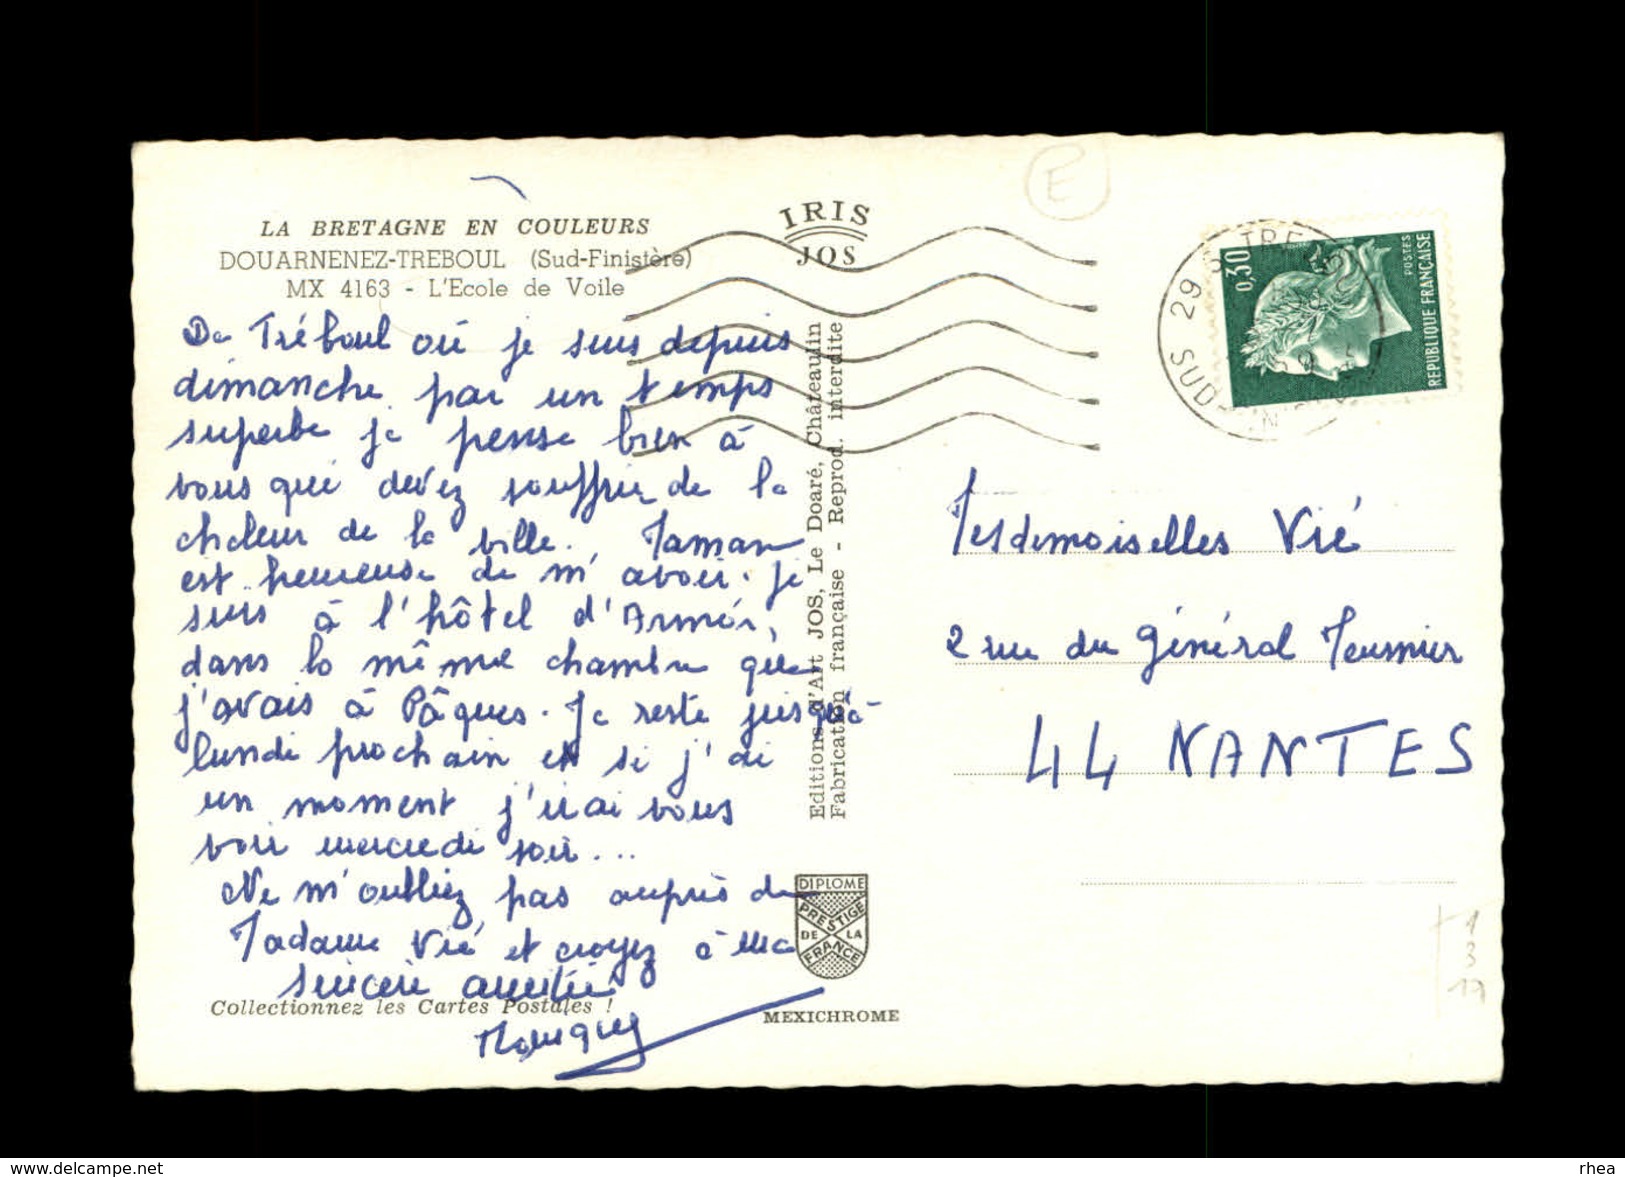 LA BRETAGNE EN COULEURS
DOUARNENEZ-TREBOUL (Sud-Finistère)
MX 4163 - L'Ecole de Voile
De Tréboul où je suis depuis
dimanche par un temps
superbe je pense bien à
vous qui devez souffrir de la
chaleur de la ville. Maman
est heureuse de m'avoir. Je
suis à l'hôtel d'Armor,
dans la même chambre que
j'avais à Pâques. Je reste jusqu'à
lundi prochain et si j'ai
un moment j'irai vous
voir mercredi soir...
Ne m'oubliez pas auprès de
Madame Vié et croyez à ma
sincère amitié
Collectionnez les Cartes Postales !
IRIS
JOS
Editions d'Art JOS, Le Doaré, Châteaulin
Fabrication française - Reprod. interdite
DIPLOME
PRESTIGE
DE LA
FRANCE
MEXICHROME
E
29
SUD
0,30
POSTES
REPUBLIQUE FRANÇAISE
Mesdemoiselles Vié
2 rue du Général Meusnier
44 NANTES
1
3
17
www.delcampe.net
rhea